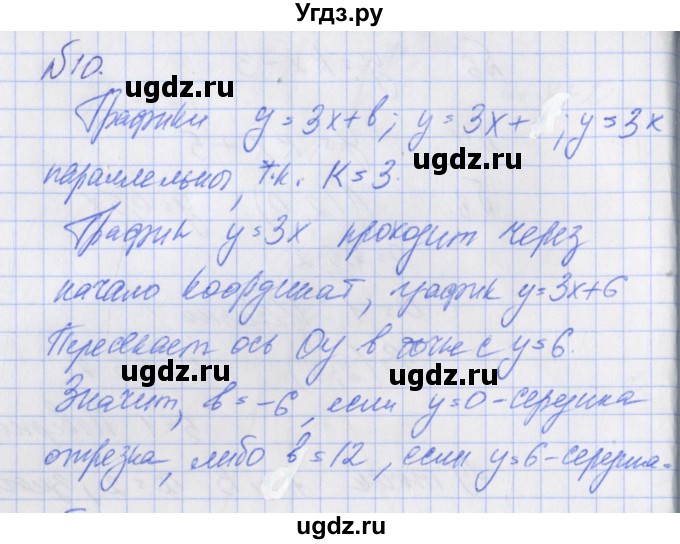 Угдз.ру
№10.
Графики y=3x+b; y=3x+ ; y=3x
параллельны, т.к. K=3.
График y=3x проходит через
начало координат, график y=3x+6
Пересекает ось Oy в точке с y=6.
Значит, b=-6, если y=0-середина
отрезка, либо b=12, если y=6-середина.
ugdz.ru
ugdz.ru
ugdz.ru
ugdz.ru
ugdz.ru
ugdz.ru
ugdz.ru
ugdz.ru